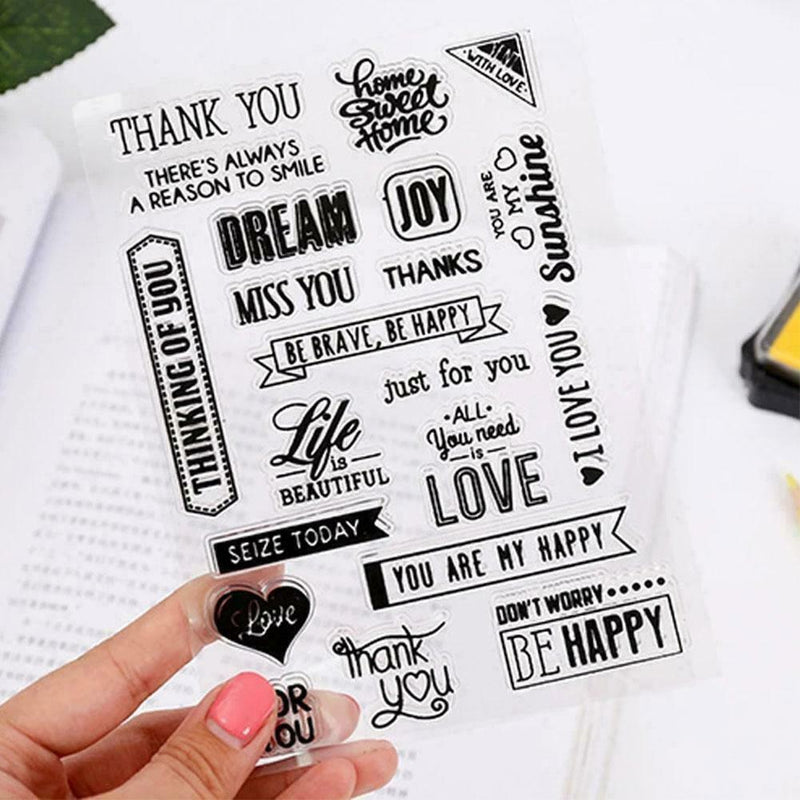 THANK YOU
home
Sweet
Home
WITH LOVE
THERE'S ALWAYS
A REASON TO SMILE
DREAM
JOY
YOU ARE
MY
Sunshine
THINKING OF YOU
MISS YOU
THANKS
BE BRAVE, BE HAPPY
just for you
I LOVE YOU
Life
is
BEAUTIFUL
·ALL·
You need
is
LOVE
SEIZE TODAY
YOU ARE MY HAPPY
Love
thank
you
DON'T WORRY
BE HAPPY
OR
YOU